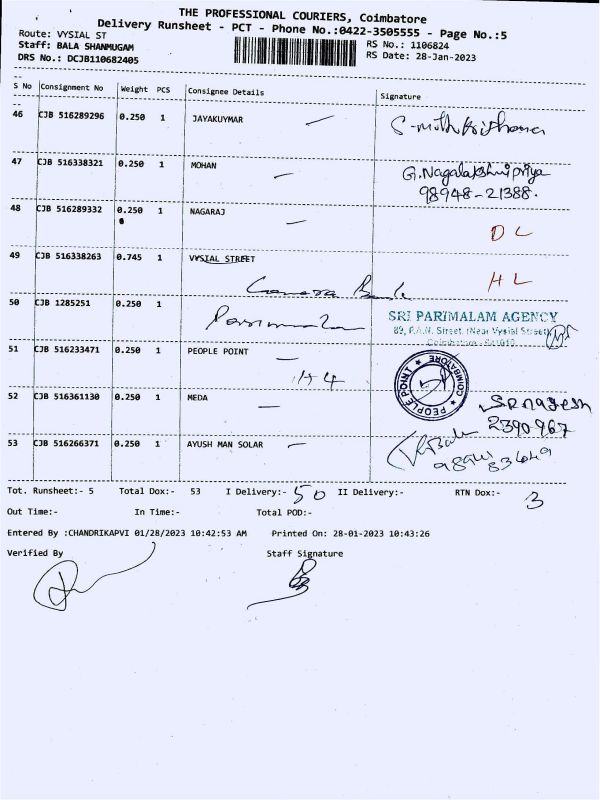 THE PROFESSIONAL COURIERS, Coimbatore
Delivery Runsheet - PCT - Phone No.:0422-3505555 - Page No.:5
Route: VYSIAL ST
RS No.: 1106824
Staff: BALA SHANMUGAM
RS Date: 28-Jan-2023
DRS No.: DCJB110682405
S No Consignment No Weight PCS Consignee Details Signature
46 CJB 516289296 0.250 1 JAYAKUYMAR
47 CJB 516338321 0.250 1 MOHAN G.Nagalakshmipriya
98948-21388.
48 CJB 516289332 0.250 1 NAGARAJ DL
49 CJB 516338263 0.745 1 VYSIAL STREET HL
Canara Bank
50 CJB 1285251 0.250 1 Parimalam SRI PARIMALAM AGENCY
89, P.A.N. Street, (Near Vysial Street)
51 CJB 516233471 0.250 1 PEOPLE POINT
PEOPLE POINT ★ COIMBATORE ★
52 CJB 516361130 0.250 1 MEDA
2390967
53 CJB 516266371 0.250 1 AYUSH MAN SOLAR
Tot. Runsheet:- 5 Total Dox:- 53 I Delivery:- 50 II Delivery:- RTN Dox:- 3
Out Time:- In Time:- Total POD:-
Entered By :CHANDRIKAPVI 01/28/2023 10:42:53 AM Printed On: 28-01-2023 10:43:26
Verified By Staff Signature